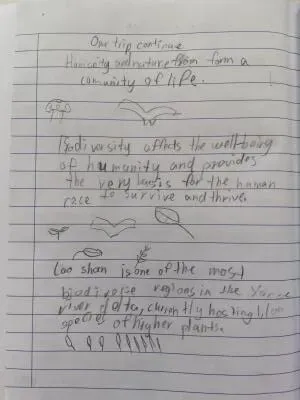 Our trip continue
Humanity and nature from form a
comunity of life.
Biodiversity affects the well-being
of humanity and provides
the very basis for the human
race to survive and thrive.
Lao shan is one of the most
biodiverse regions in the
river delta, currently hosting
species of higher plants.